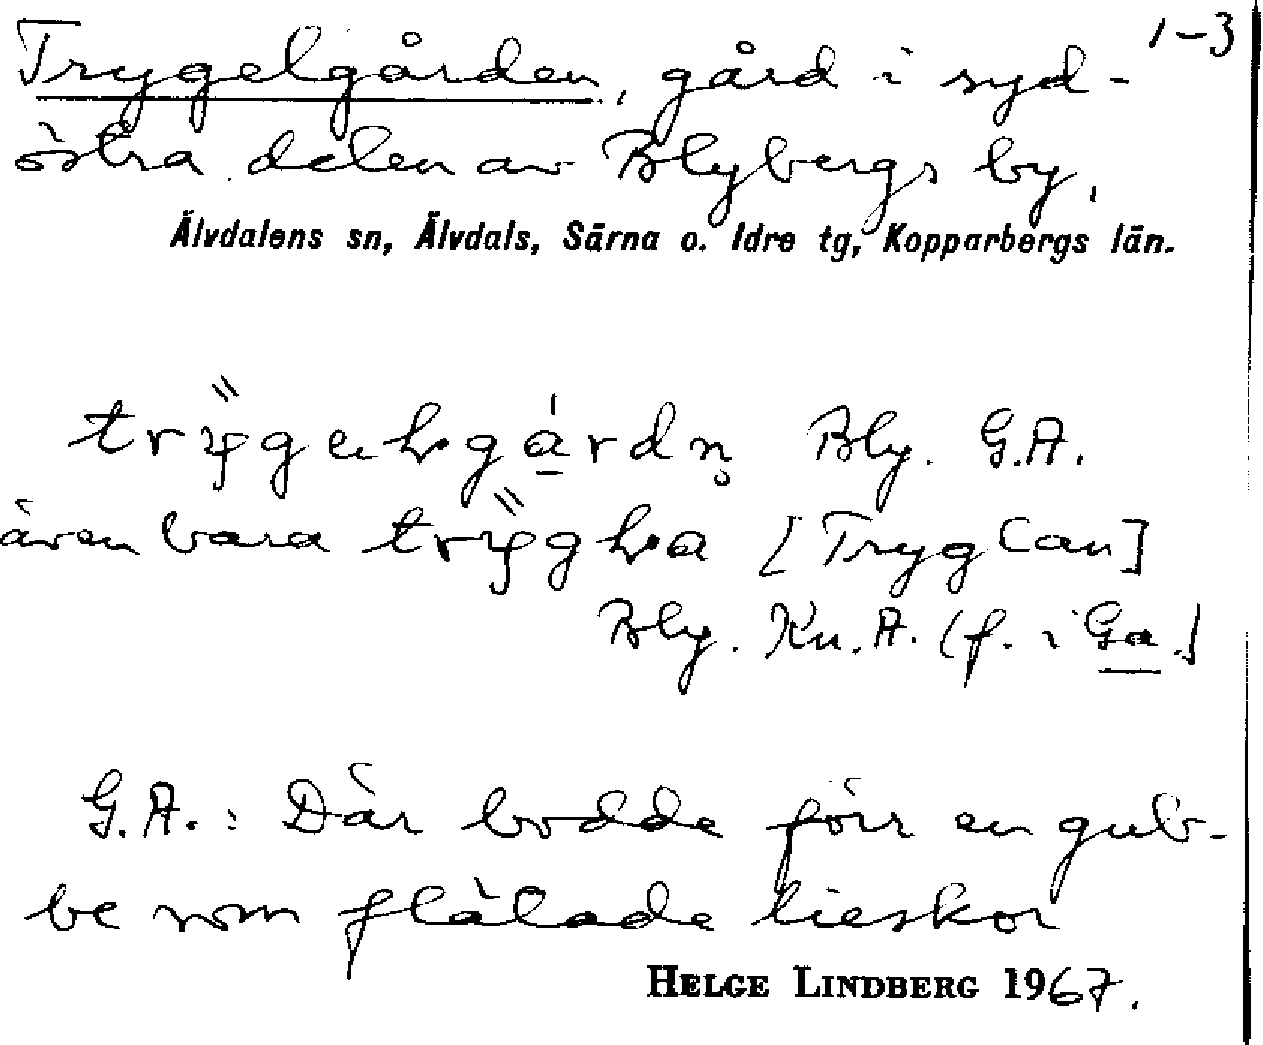 1-3
Trygelgården, gård i syd-
östra delen av Blybergs by.
Älvdalens sn, Älvdals, Särna o. Idre tg, Kopparbergs län.
Bly. G.A.
även bara [Tryglan]
Bly. Kn.A. (f. i Ga.)
G.A.: Där bodde förr en gub-
be som flätade lieskor
HELGE LINDBERG 1967.